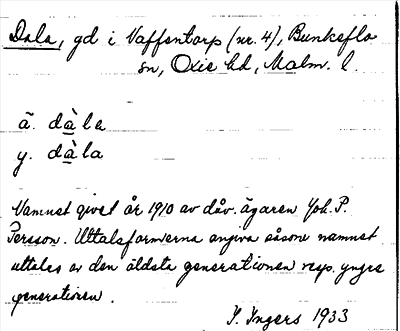 Dala, gd i Vaffentorp (nr. 4), Bunkeflo
sn, Oxie hd, Malm. l.
ä. dàla
y. dàla
Namnet givet år 1910 av dåv. ägaren Joh. P.
Persson. Uttalsformerna angiva såsom namnet
uttales av den äldsta generationen resp. yngre
generationen.
I. Ingers 1933